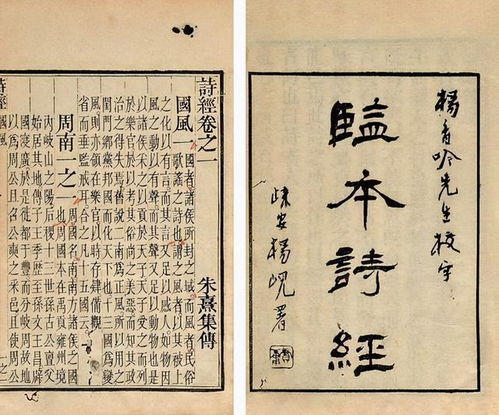 楊香吟先生校字
監本詩經
楊峴署
詩經卷之一
朱熹集傳
國風一 國者諸侯所封之域而風者民俗
歌謠之詩也謂之風者以其被上
之化以有言而其言又足以感人如物因
風之動以有聲而其聲又足以動物也是
以諸侯采之以貢於天子天子受之而列
於樂官於以考其俗尚之美惡而知其政
治之得失焉舊說二南為正風所以用之
閨門鄉黨邦國而化天下也十三國為變
風則亦領在樂官以時存肄備觀
省而垂監戒耳合之凡十五國云
周南一之一 周國名南南方諸侯之國
也周國本在禹貢雍州境
內岐山之陽后稷十三世孫古公亶父
始居其地傳子王季歷至孫文王昌辟
國寖廣於是徙都于豐而分岐周故地
以為周公旦召公奭之采邑且使周公
詩經
國風